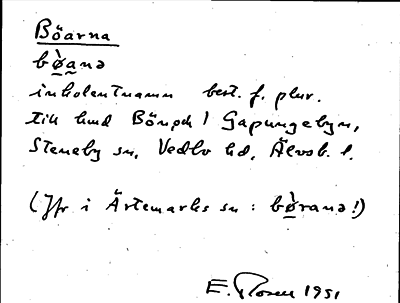 Böarna
bø̀anə
inbolentnamn best. f. plur.
till hmd Bön i Gapungebyn,
Steneby sn, Vedbo hd, Älvsb. l.
(Jfr i Ärtemarks sn : bø̀ranə!)
E. Rosen 1951